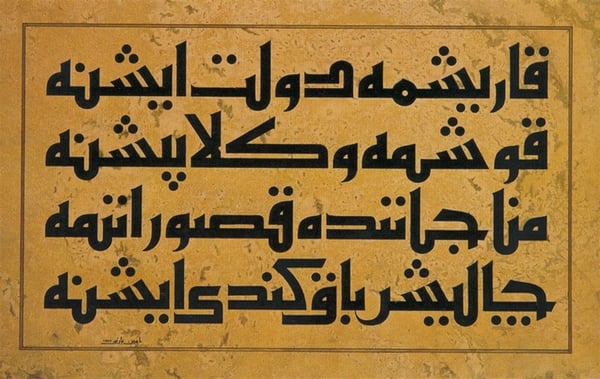 قاریشمه دولت ایشنه
قوشمه وكلا پیشنه
مناجاتنده قصور ایتمه
چالیشر باق كندی ایشنه